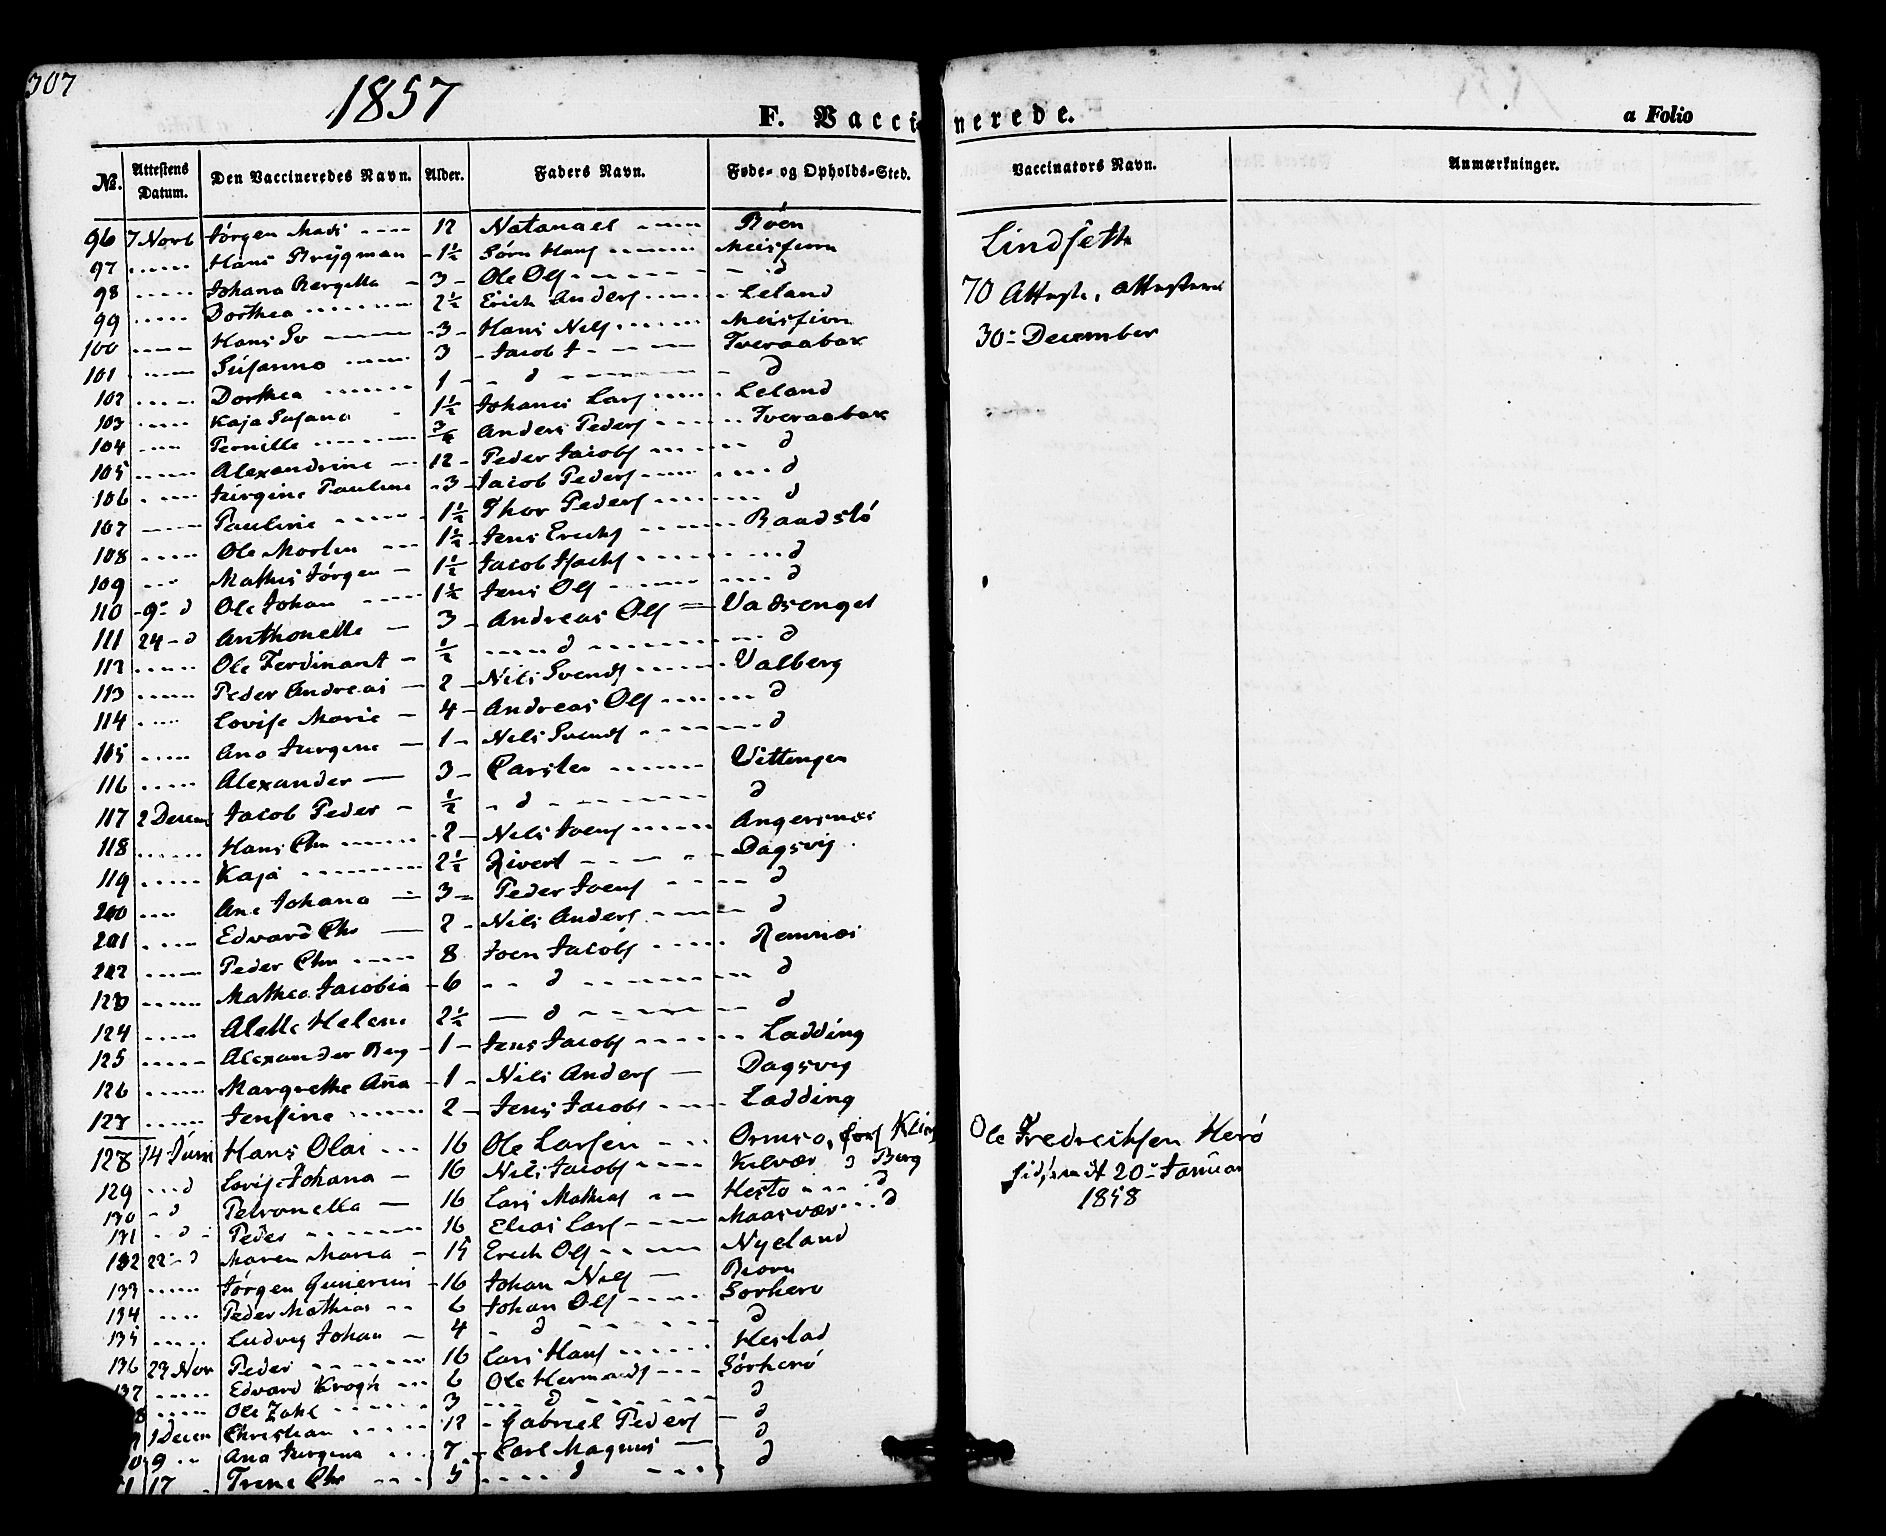 307
1857
F. Vaccinerede.
a Folio
No. Attestens Datum. Den Vaccineredes Navn. Alder. Faders Navn. Føde- og Opholds-Sted. Vaccinators Navn. Anmærkninger.
96 7 Novb Jørgen Mads 12 Natanael Røen Lindseth
97 Hans Brygman 1½ Sørn Hans
98 Johana Bergitta 3 Ole Ols d
99 Dorthea 2½ Erich Anders Leland 70 Attester,
100 Hans 3 Hans Nils Meisfiorn 30- December
101 Susanna 3 Jacob J Tveraabak
102 Dorthea 1 d d
103 Kaja Susana 1½ Johanes Lars Leland
104 Pernille ¾ Anders Peders Tveraabak
105 Alexandrine 12 Peder Jacobs d
106 Jurgine Pauline 3 Jacob Peders d
107 Pauline 1½ Thor Peders d
108 Ole Morten 1½ Jens Erichs
109 Mathis Jørgen 1½ Jacob d
110 9- d Ole Johan 1½ Jens Ols d
111 24 - d Anthonette 3 Andreas Ols Vadsenget
112 Ole Ferdinant ½ d d
113 Peder Andreas 2 Nils Svends Valberg
114 Lovise Marie 4 Andreas Ols d
115 Ana Jurgine 1 Nils Svends d
116 Alexander 3 Carsten
117 2 Decem Jacob Peder ½ d d
118 Hans Chr 2 Nils Joens Angersnes
119 Kaja 2½ Zivert Dagsvig
200 Ane Johana 3 Peder Joens d
201 Edvard Chr 2 Nils Anders d
202 Peder Chr 8 Joen Jacobs Remnes
123 Mathea Jacobia 6 d d
124 Alette Helene 2½ d d
125 Alexander Berg 1 Jens Jacobs Ladding
126 Margrethe Aña 1 Nils Anders Dagsvig
127 Jensine 2 Jens Jacobs Ladding
128 14 Juni Hans Olai 16 Ole Larsen Ormsø, Ole Fredreiksen Herø
129 d Lovise Johana 16 Nils Jacobs Kilvær d Berg 20- Januar
130 d Petronella 16 Lars Mathias Hestø d 1858
131 d Peder 16 Elias Lars Maasvær d
132 22- d Maren Maria 15 Erich Ols Nyeland
133 Jørgen 16 Johan Nils
134 Peder Mathias 6 Johan Ols Sørherø
135 Ludvig Johan 4 d d
136 23 Nov Peder 16 Lars Hans Hestad
137 Edvard Krogh 6 Ole Hermands Sørherø
8 Ole Zahl 3 d d
1 Decem Christian 12 Gabriel Peders d
0 9 Ana Jurgina 7 Carl Magnus d
1 17 Trine Chr 5 d d